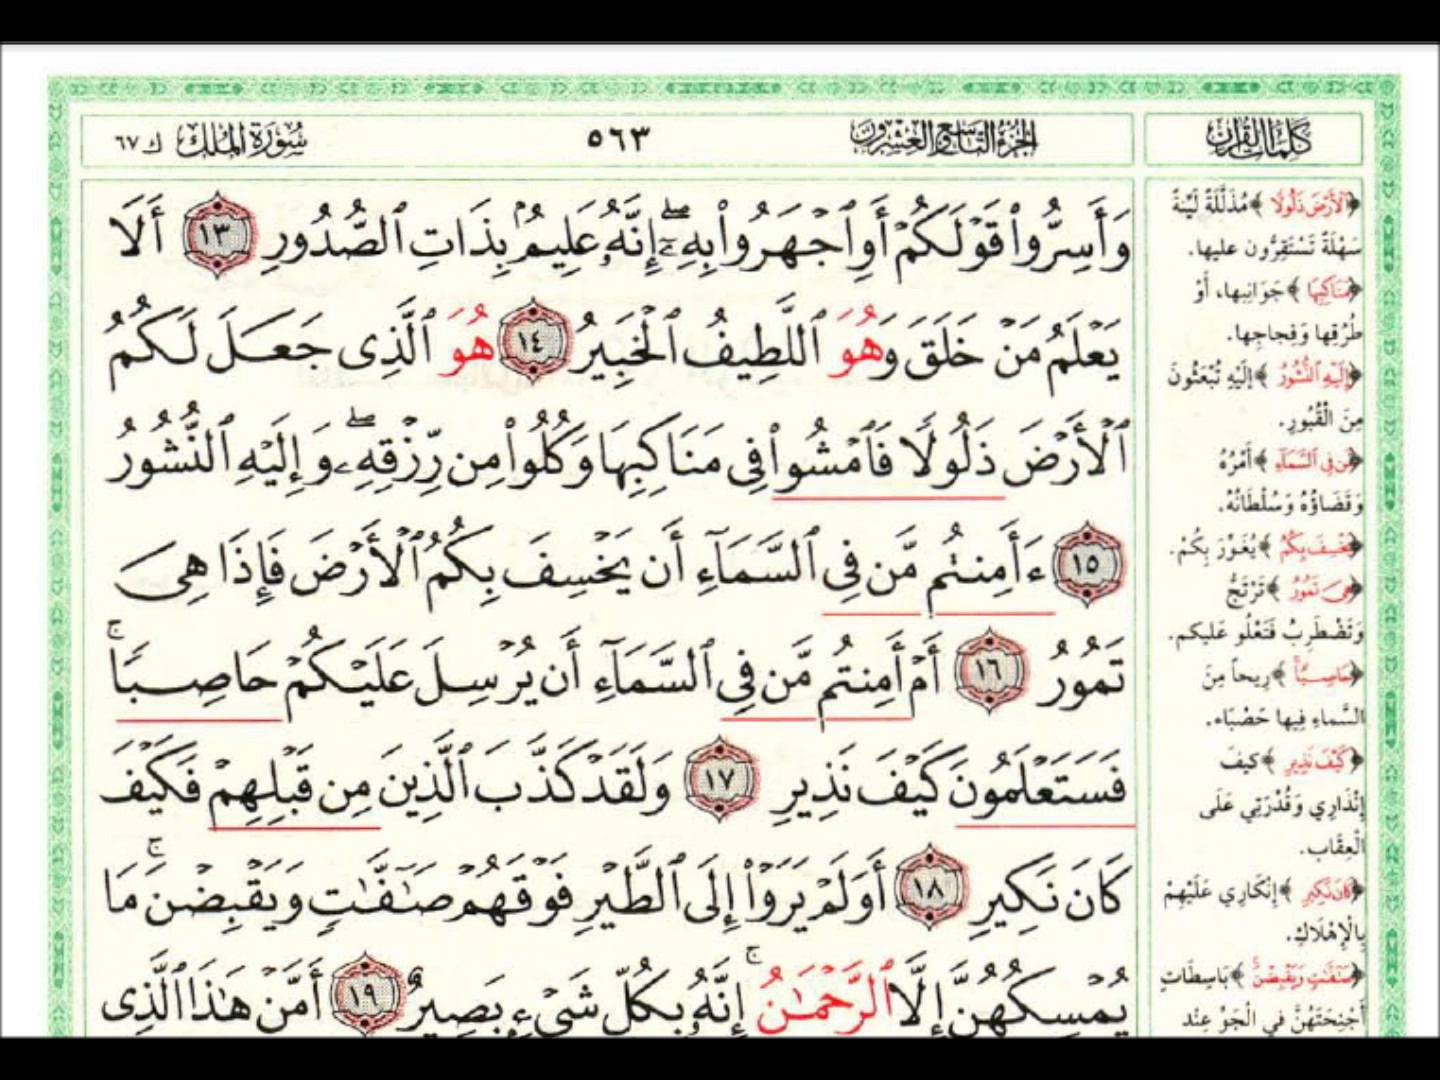 كلمات القرآن
الجزء التاسع والعشرون
٥٦٣
سورة الملك ك ٦٧
وَأَسِرُّوا۟ قَوْلَكُمْ أَوِ ٱجْهَرُوا۟ بِهِۦٓ ۖ إِنَّهُۥ عَلِيمٌۢ بِذَاتِ ٱلصُّدُورِ ١٣ أَلَا
يَعْلَمُ مَنْ خَلَقَ وَهُوَ ٱللَّطِيفُ ٱلْخَبِيرُ ١٤ هُوَ ٱلَّذِى جَعَلَ لَكُمُ
ٱلْأَرْضَ ذَلُولًا فَٱمْشُوا۟ فِى مَنَاكِبِهَا وَكُلُوا۟ مِن رِّزْقِهِۦ ۖ وَإِلَيْهِ ٱلنُّشُورُ
١٥ ءَأَمِنتُم مَّن فِى ٱلسَّمَآءِ أَن يَخْسِفَ بِكُمُ ٱلْأَرْضَ فَإِذَا هِىَ
تَمُورُ ١٦ أَمْ أَمِنتُم مَّن فِى ٱلسَّمَآءِ أَن يُرْسِلَ عَلَيْكُمْ حَاصِبًا ۖ
فَسَتَعْلَمُونَ كَيْفَ نَذِيرِ ١٧ وَلَقَدْ كَذَّبَ ٱلَّذِينَ مِن قَبْلِهِمْ فَكَيْفَ
كَانَ نَكِيرِ ١٨ أَوَلَمْ يَرَوْا۟ إِلَى ٱلطَّيْرِ فَوْقَهُمْ صَٰٓفَّٰتٍ وَيَقْبِضْنَ ۚ مَا
يُمْسِكُهُنَّ إِلَّا ٱلرَّحْمَٰنُ ۚ إِنَّهُۥ بِكُلِّ شَىْءٍۭ بَصِيرٌ ١٩ أَمَّنْ هَٰذَا ٱلَّذِى
﴿ٱلْأَرْضَ ذَلُولًا﴾ مُذَلَّلَةً لَيِّنَةً
سَهْلَةً تَسْتَقِرُّون عليها.
﴿مَنَاكِبِهَا﴾ جَوَانِبها، أَوْ
طُرُقِها وَفِجاجِها.
﴿إِلَيْهِ ٱلنُّشُورُ﴾ إِلَيْهِ تُبْعَثُونَ
مِنَ الْقُبُورِ.
﴿مَّن فِى ٱلسَّمَآءِ﴾ أَمْرُهُ
وَقَضَاؤُهُ وَسُلْطَانُهُ.
﴿يَخْسِفَ بِكُمُ﴾ يُغَوِّرَ بِكُمْ.
﴿هِىَ تَمُورُ﴾ تَرْتَجُّ
وَتَضْطَرِبُ فَتَعْلُو عَليكم.
﴿حَاصِبًا﴾ رِيحاً مِنَ
السَّماءِ فِيها حَصْبَاء.
﴿كَيْفَ نَذِيرِ﴾ كيفَ
إِنْذَارِي وَقُدْرَتِي عَلَى
الْعِقَاب.
﴿كَانَ نَكِيرِ﴾ إِنْكَارِي عَلَيْهِمْ
بِالْإِهْلَاكِ.
﴿صَٰٓفَّٰتٍ وَيَقْبِضْنَ﴾ بَاسِطَاتٍ
أَجْنِحَتَهُنَّ في الْجَوِّ عِنْد